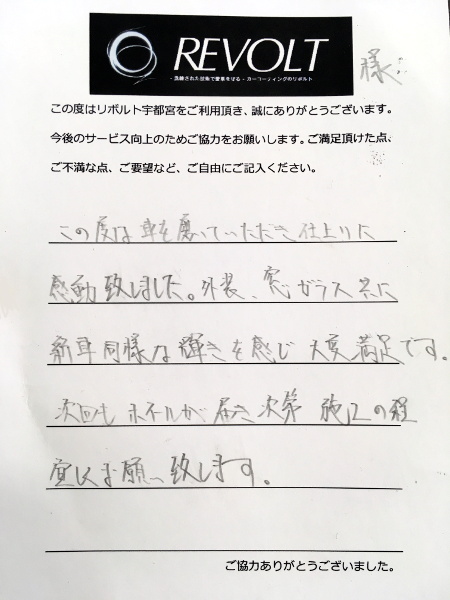 REVOLT
- 洗練された技術で愛車を守る - カーコーティングのリボルト
様
この度はリボルト宇都宮をご利用頂き、誠にありがとうございます。
今後のサービス向上のためご協力をお願いします。ご満足頂けた点、
ご不満な点、ご要望など、ご自由にご記入ください。
この度は車を磨いていただき仕上りに
感動致しました。外装、窓ガラス共に
新車同様な輝きを感じ大変満足です。
次回もホイルが届き次第施工の程
宜しくお願い致します。
ご協力ありがとうございました。